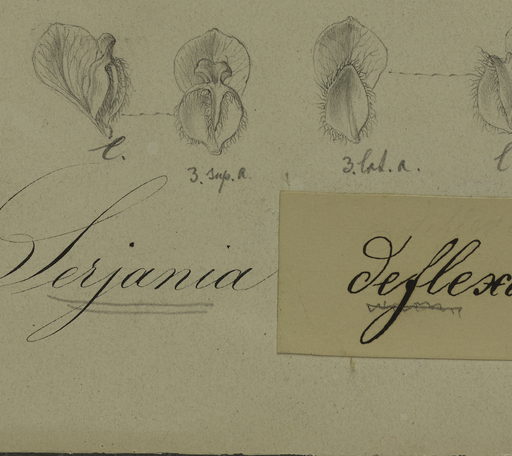 l.
3. sup. a.
3. lat. a.
l
Serjania
deflexa